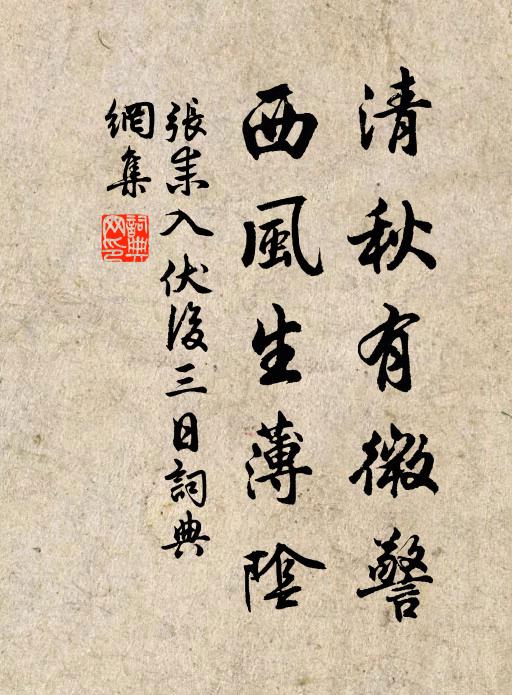 清秋有微警
西風生薄陰
張耒入伏後三日詞典
網集
詞典
网印